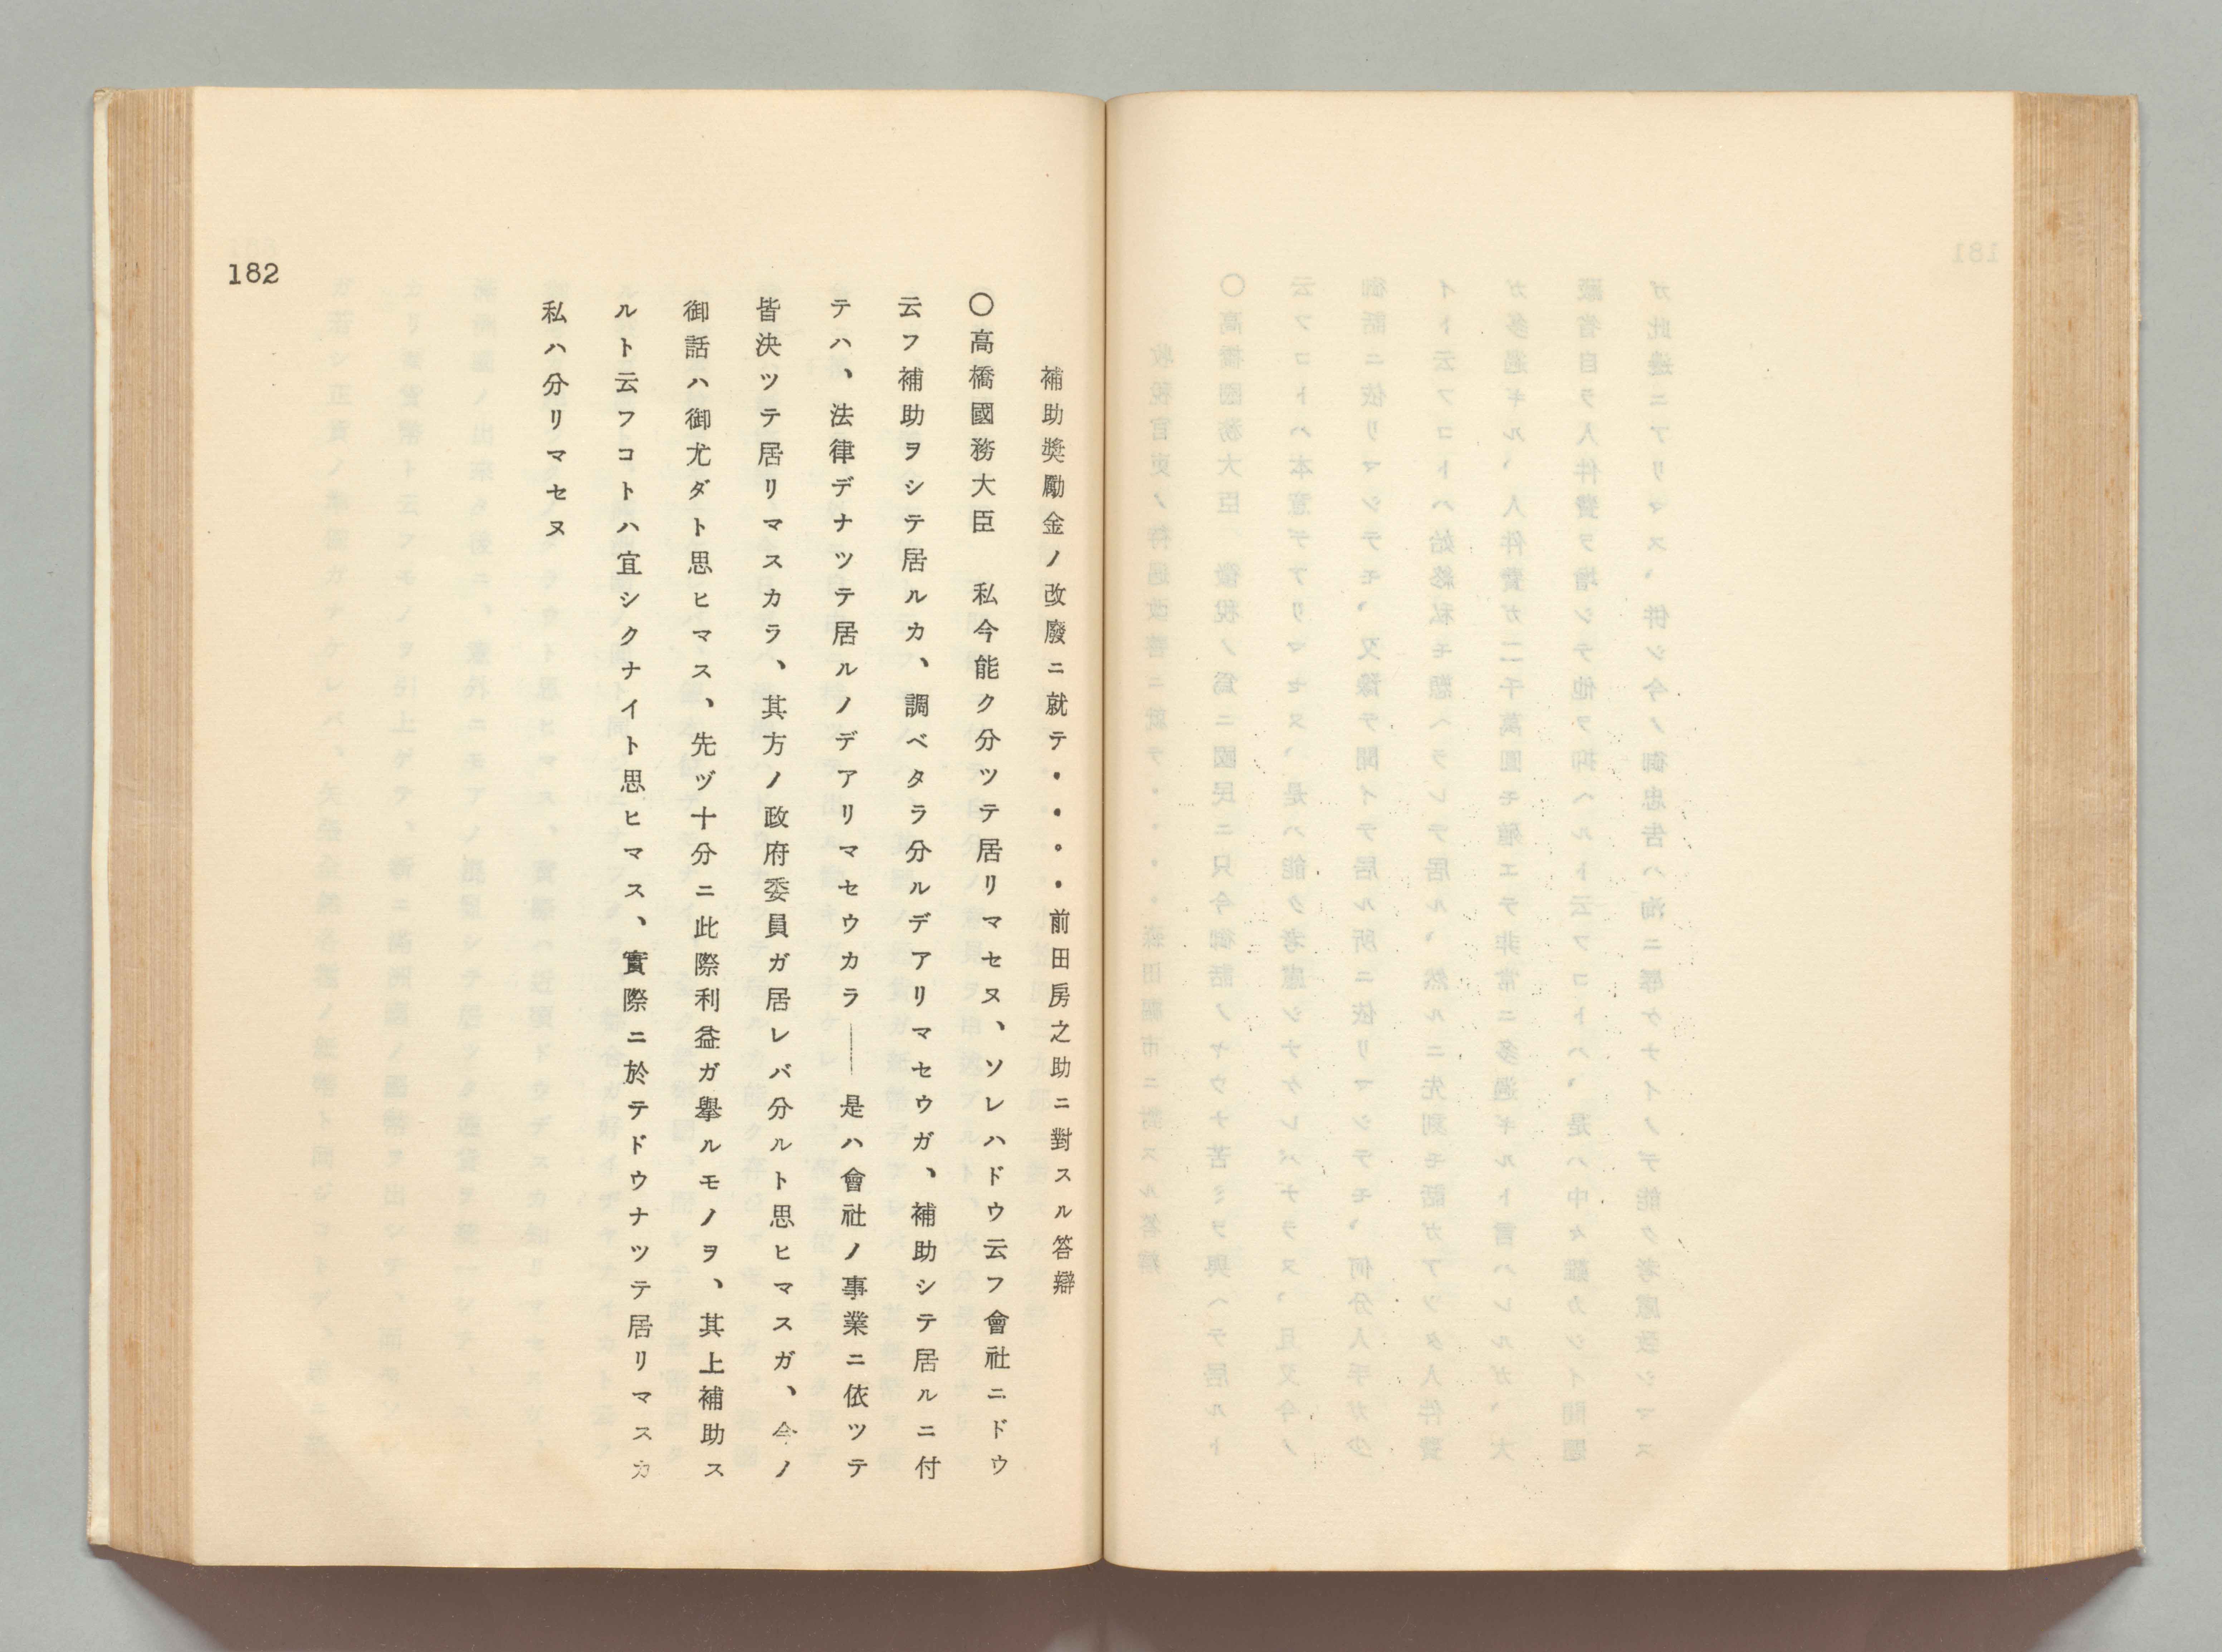 補助奬勵金ノ改廢ニ就テ・・・・前田房之助ニ對スル答辯
〇高橋國務大臣　私今能ク分ツテ居リマセヌ、ソレハドウ云フ會社ニドウ
云フ補助ヲシテ居ルカ、調ベタラ分ルデアリマセウガ、補助シテ居ルニ付
テハ、法律デナツテ居ルノデアリマセウカラ――是ハ會社ノ事業ニ依ツテ
皆決ツテ居リマスカラ、其方ノ政府委員ガ居レバ分ルト思ヒマスガ、今ノ
御話ハ御尤ダト思ヒマス、先ヅ十分ニ此際利益ガ擧ルモノヲ、其上補助ス
ルト云フコトハ宜シクナイト思ヒマス、實際ニ於テドウナツテ居リマスカ
私ハ分リマセヌ
182